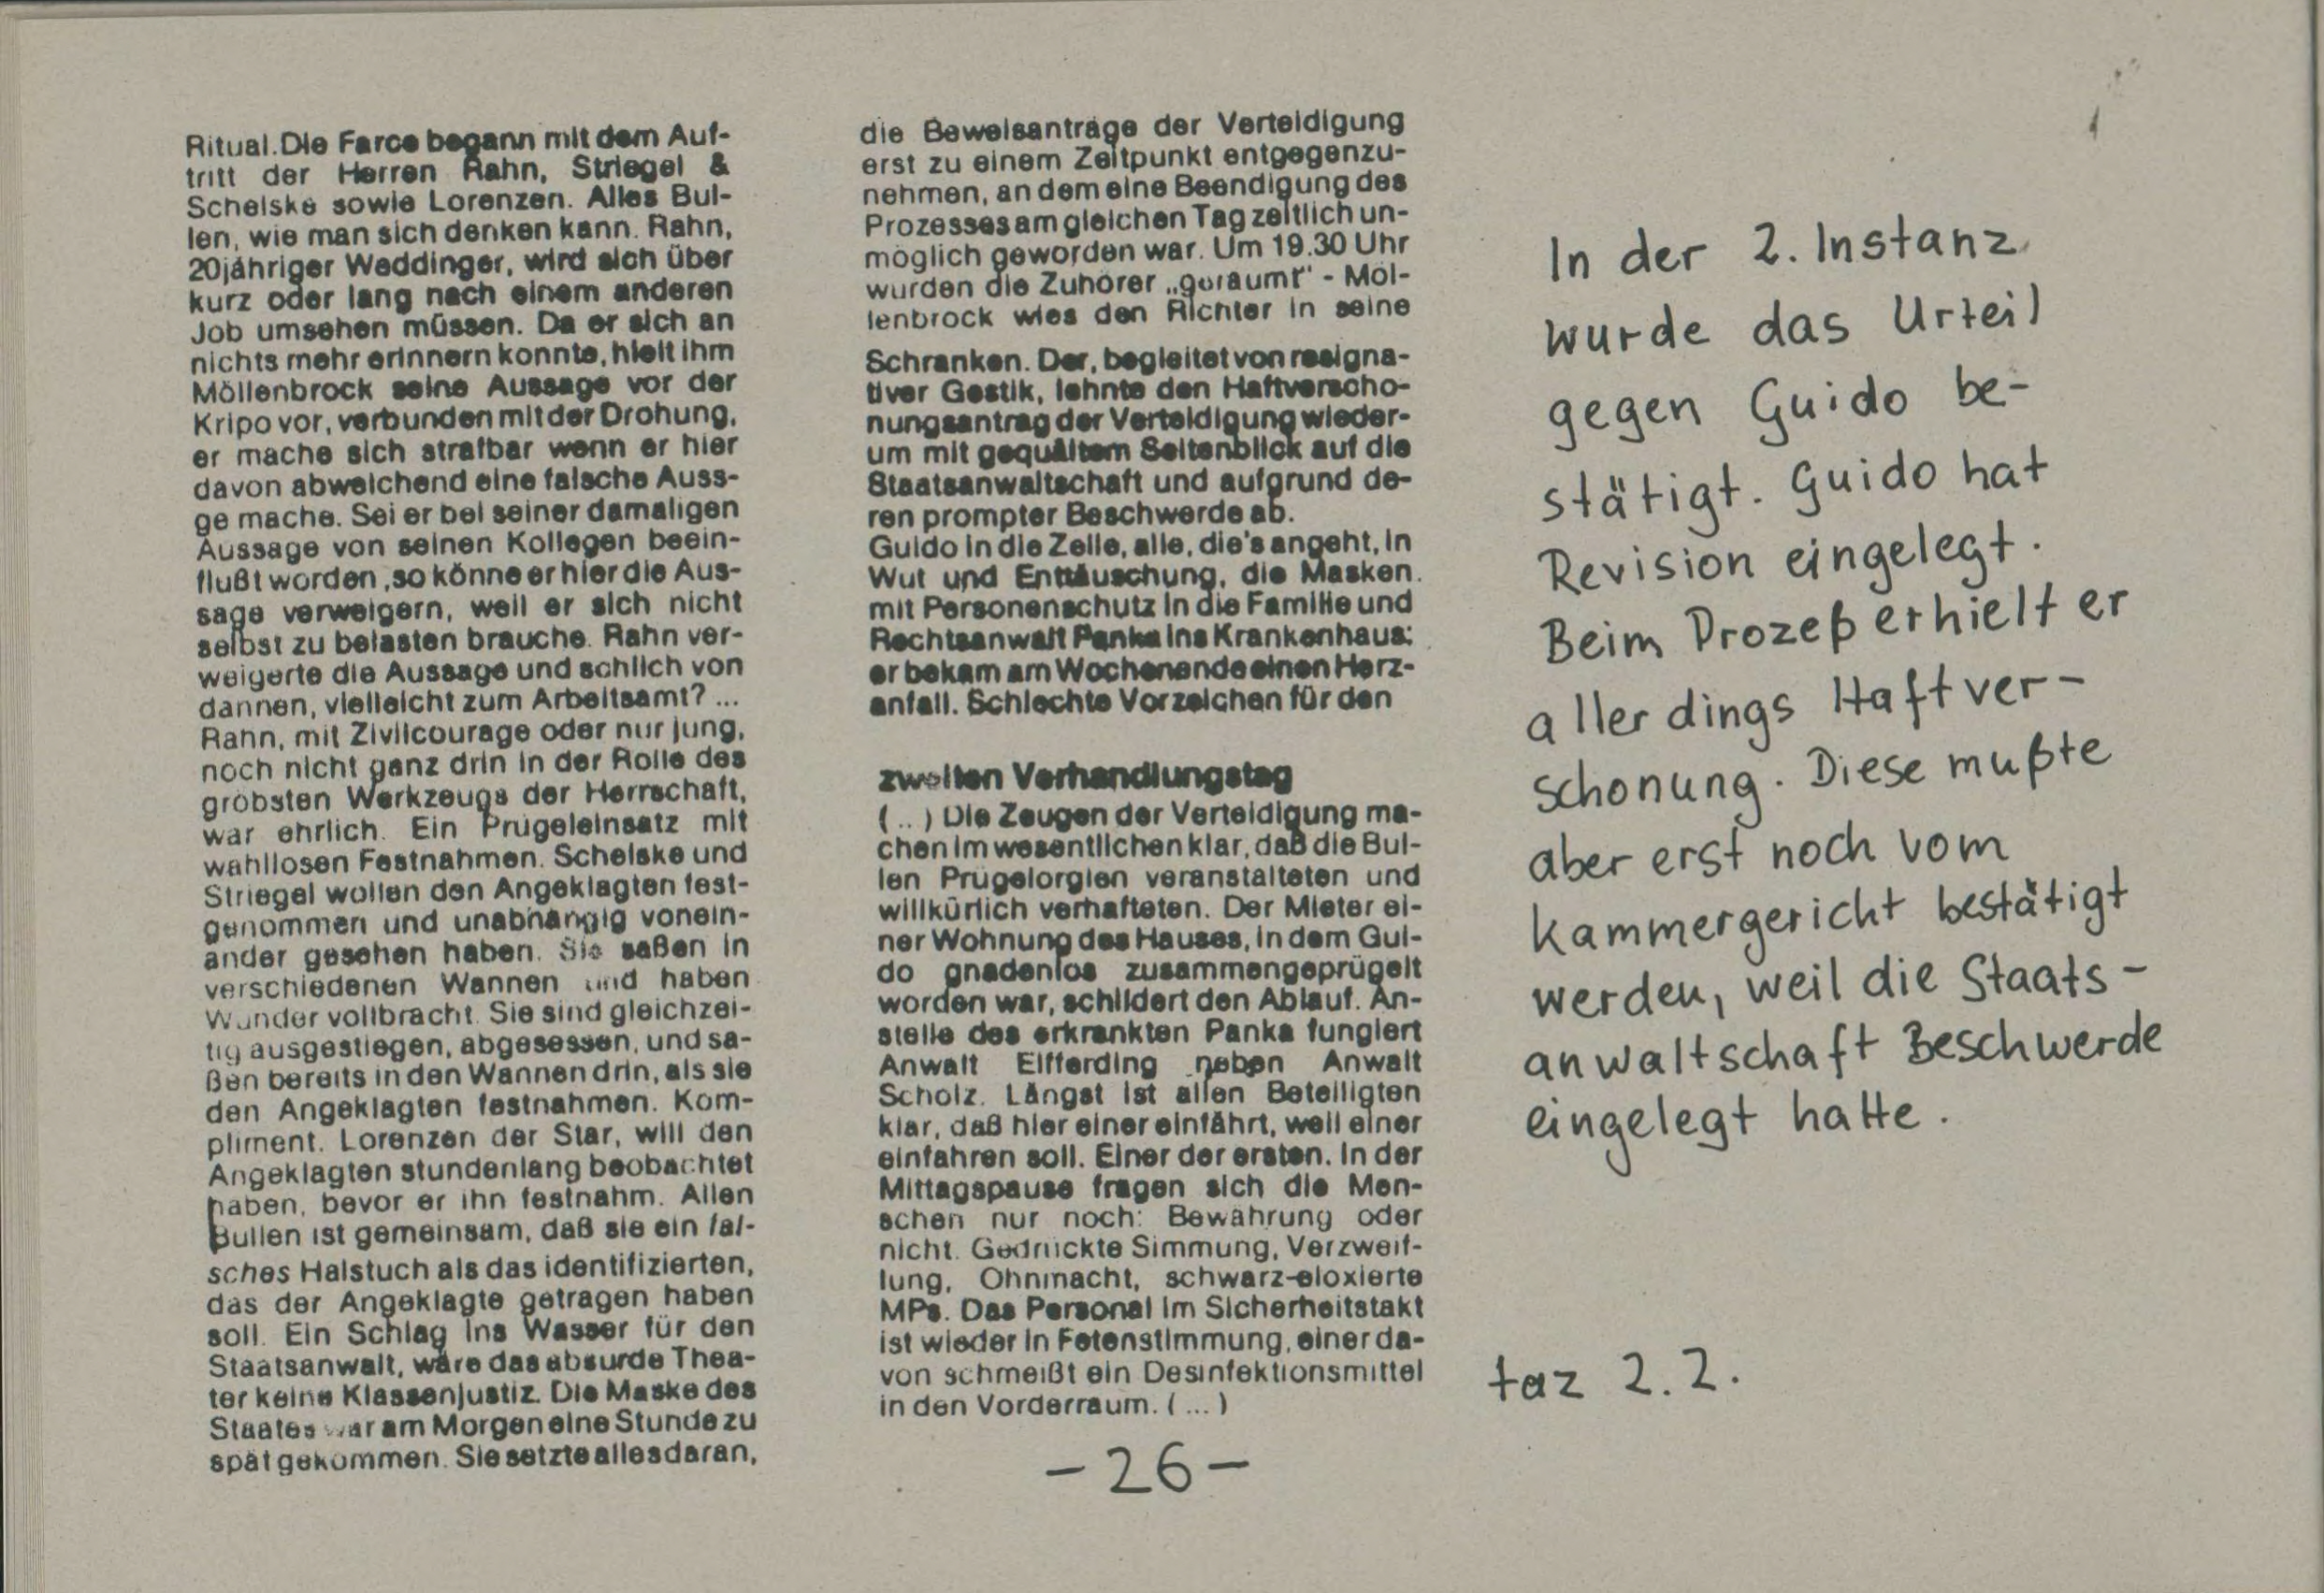 Ritual. Die Farce begann mit dem Auf-
tritt der Herren Rahn, Striegel &
Schelske sowie Lorenzen. Alles Bul-
len, wie man sich denken kann. Rahn,
20jähriger Weddinger, wird sich über
kurz oder lang nach einem anderen
Job umsehen müssen. Da er sich an
nichts mehr erinnern konnte, hielt ihm
Möllenbrock seine Aussage vor der
Kripo vor, verbunden mit der Drohung,
er mache sich strafbar wenn er hier
davon abweichend eine falsche Auss-
ge mache. Sei er bei seiner damaligen
Aussage von seinen Kollegen beein-
flußt worden ,so könne er hier die Aus-
sage verweigern, weil er sich nicht
selbst zu belasten brauche. Rahn ver-
weigerte die Aussage und schlich von
dannen, vielleicht zum Arbeitsamt? ...
Rahn, mit Zivilcourage oder nur jung,
noch nicht ganz drin in der Rolle des
gröbsten Werkzeugs der Herrschaft,
war ehrlich. Ein Prügeleinsatz mit
wahllosen Festnahmen. Schelske und
Striegel wollen den Angeklagten fest-
genommen und unabhängig vonein-
ander gesehen haben. Sie saßen in
verschiedenen Wannen und haben
Wunder vollbracht. Sie sind gleichzei-
tig ausgestiegen, abgesessen, und sa-
ßen bereits in den Wannen drin, als sie
den Angeklagten festnahmen. Kom-
pliment. Lorenzen der Star, will den
Angeklagten stundenlang beobachtet
haben, bevor er ihn festnahm. Allen
Bullen ist gemeinsam, daß sie ein fal-
sches Halstuch als das identifizierten,
das der Angeklagte getragen haben
soll. Ein Schlag ins Wasser für den
Staatsanwalt, wäre das absurde Thea-
ter keine Klassenjustiz. Die Maske des
Staates war am Morgen eine Stunde zu
spät gekommen. Sie setzte alles daran,
die Beweisanträge der Verteidigung
erst zu einem Zeitpunkt entgegenzu-
nehmen, an dem eine Beendigung des
Prozesses am gleichen Tag zeitlich un-
möglich geworden war. Um 19.30 Uhr
wurden die Zuhörer „geräumt" - Möl-
lenbrock wies den Richter in seine
Schranken. Der, begleitet von resigna-
tiver Gestik, lehnte den Haftverscho-
nungsantrag der Verteidigung wieder-
um mit gequältem Seitenblick auf die
Staatsanwaltschaft und aufgrund de-
ren prompter Beschwerde ab.
Guido in die Zelle, alle, die's angeht, in
Wut und Enttäuschung, die Masken
mit Personenschutz in die Familie und
Rechtsanwalt Panka ins Krankenhaus:
er bekam am Wochenende einen Herz-
anfall. Schlechte Vorzeichen für den
zweiten Verhandlungstag
(...) Die Zeugen der Verteidigung ma-
chen im wesentlichen klar, daß die Bul-
len Prügelorgien veranstalteten und
willkürlich verhafteten. Der Mieter ei-
ner Wohnung des Hauses, in dem Gui-
do gnadenlos zusammengeprügelt
worden war, schildert den Ablauf. An-
stelle des erkrankten Panka fungiert
Anwalt Elfferding neben Anwalt
Scholz. Längst ist allen Beteiligten
klar, daß hier einer einfährt, weil einer
einfahren soll. Einer der ersten. In der
Mittagspause fragen sich die Men-
schen nur noch: Bewährung oder
nicht. Gedrückte Simmung, Verzweif-
lung, Ohnmacht, schwarz-eloxierte
MPs. Das Personal im Sicherheitstakt
ist wieder in Fetenstimmung, einer da-
von schmeißt ein Desinfektionsmittel
in den Vorderraum. (...)
- 26 -
In der 2. Instanz
wurde das Urteil
gegen Guido be-
stätigt. Guido hat
Revision eingelegt.
Beim Prozeß erhielt er
allerdings Haftver-
schonung. Diese mußte
aber erst noch vom
Kammergericht bestätigt
werden, weil die Staats-
anwaltschaft Beschwerde
eingelegt hatte.
taz 2.2.